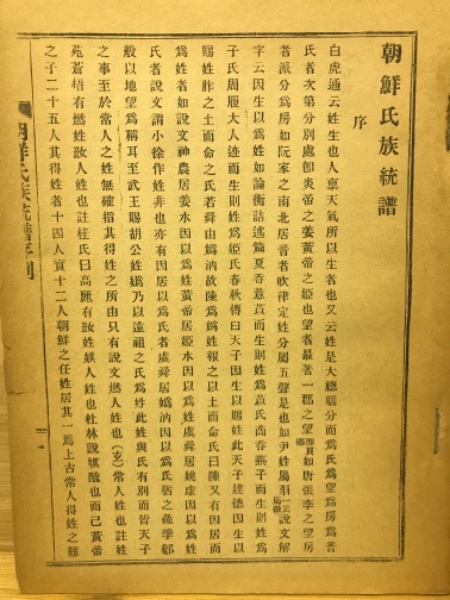 朝鮮氏族統譜
序
白虎通云姓生也人禀天氣所以生者也又云姓是大總腦分而爲氏爲望爲房爲著
氏者次第分別處卽炎帝之姜黃帝之姬也望者最著一郡之望卽貫鄕如唐張李之望房
者派分爲房如阮家之南北居昔者吹律定姓分屬五聲是也如尹姓屬羽一云屬徵說文解
字云因生以爲姓如論衡詰術篇夏呑薏苡而生則姓爲苡氏商呑燕子而生則姓爲
子氏周履大人迹而生則姓爲姬氏春秋傳曰天子因生以賜姓此天子建德因生以
賜姓胙之土而命之氏若舜由嬀汭故陳爲嬀姓報之以土而命氏曰陳又有因居而
爲姓者如說文神農居姜水因以爲姓黃帝居姬水因以爲姓虞舜居姚虛因以爲姓
氏者說文謂小徐作姓非也亦有因居以爲氏者虞舜居嬀汭因以爲氏猶之
般以地望爲稱耳至武王賜胡公姓嬀乃以遠祖之氏爲姓此姓與氏有別而皆天子
之事至於常人之姓無確指其得姓之所由只有說文㜣人姓也(玄)常人姓也註姓
苑蒼梧有㜣姓㚥人姓也註桂氏曰高麗有㚥姓娸人姓也杜林說娸醜也而己黃帝
之子二十五人其得姓者十四人實十二人朝鮮之任姓居其一焉上古常人得姓之難
朝鮮氏族統譜序
一